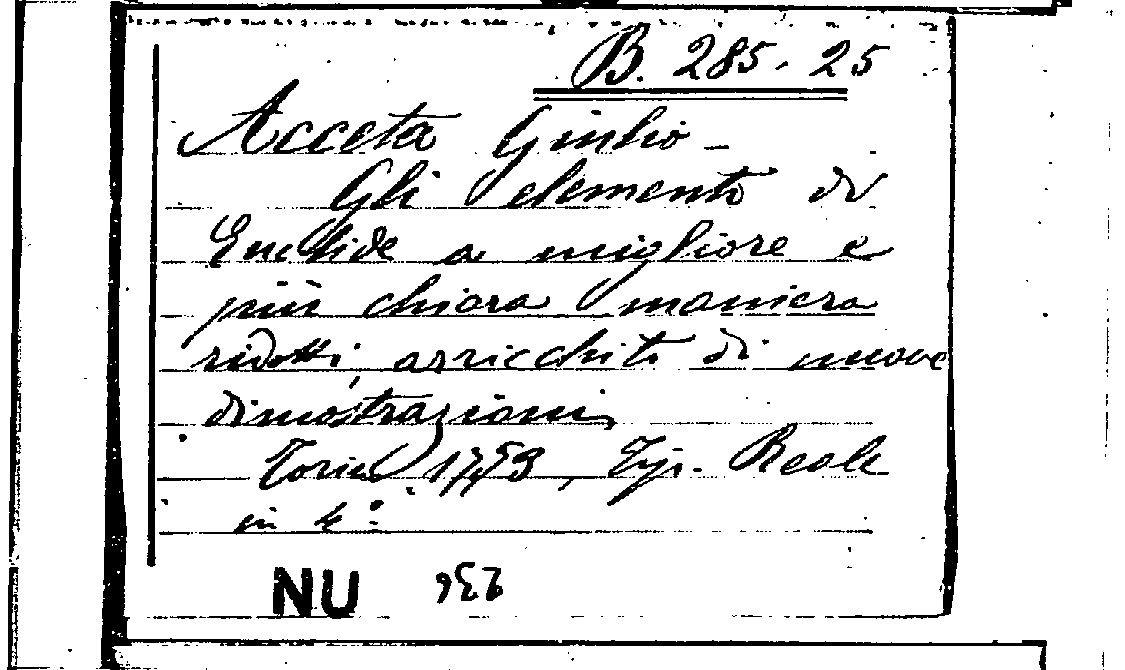 B. 285. 25
Acceta Giulio -
Gli elementi di
Euclide a migliore e
più chiara maniera
ridotti, arricchiti di nuove
dimostrazioni,
Torino 1753, Typ. Reale
in 4°.
NU 236